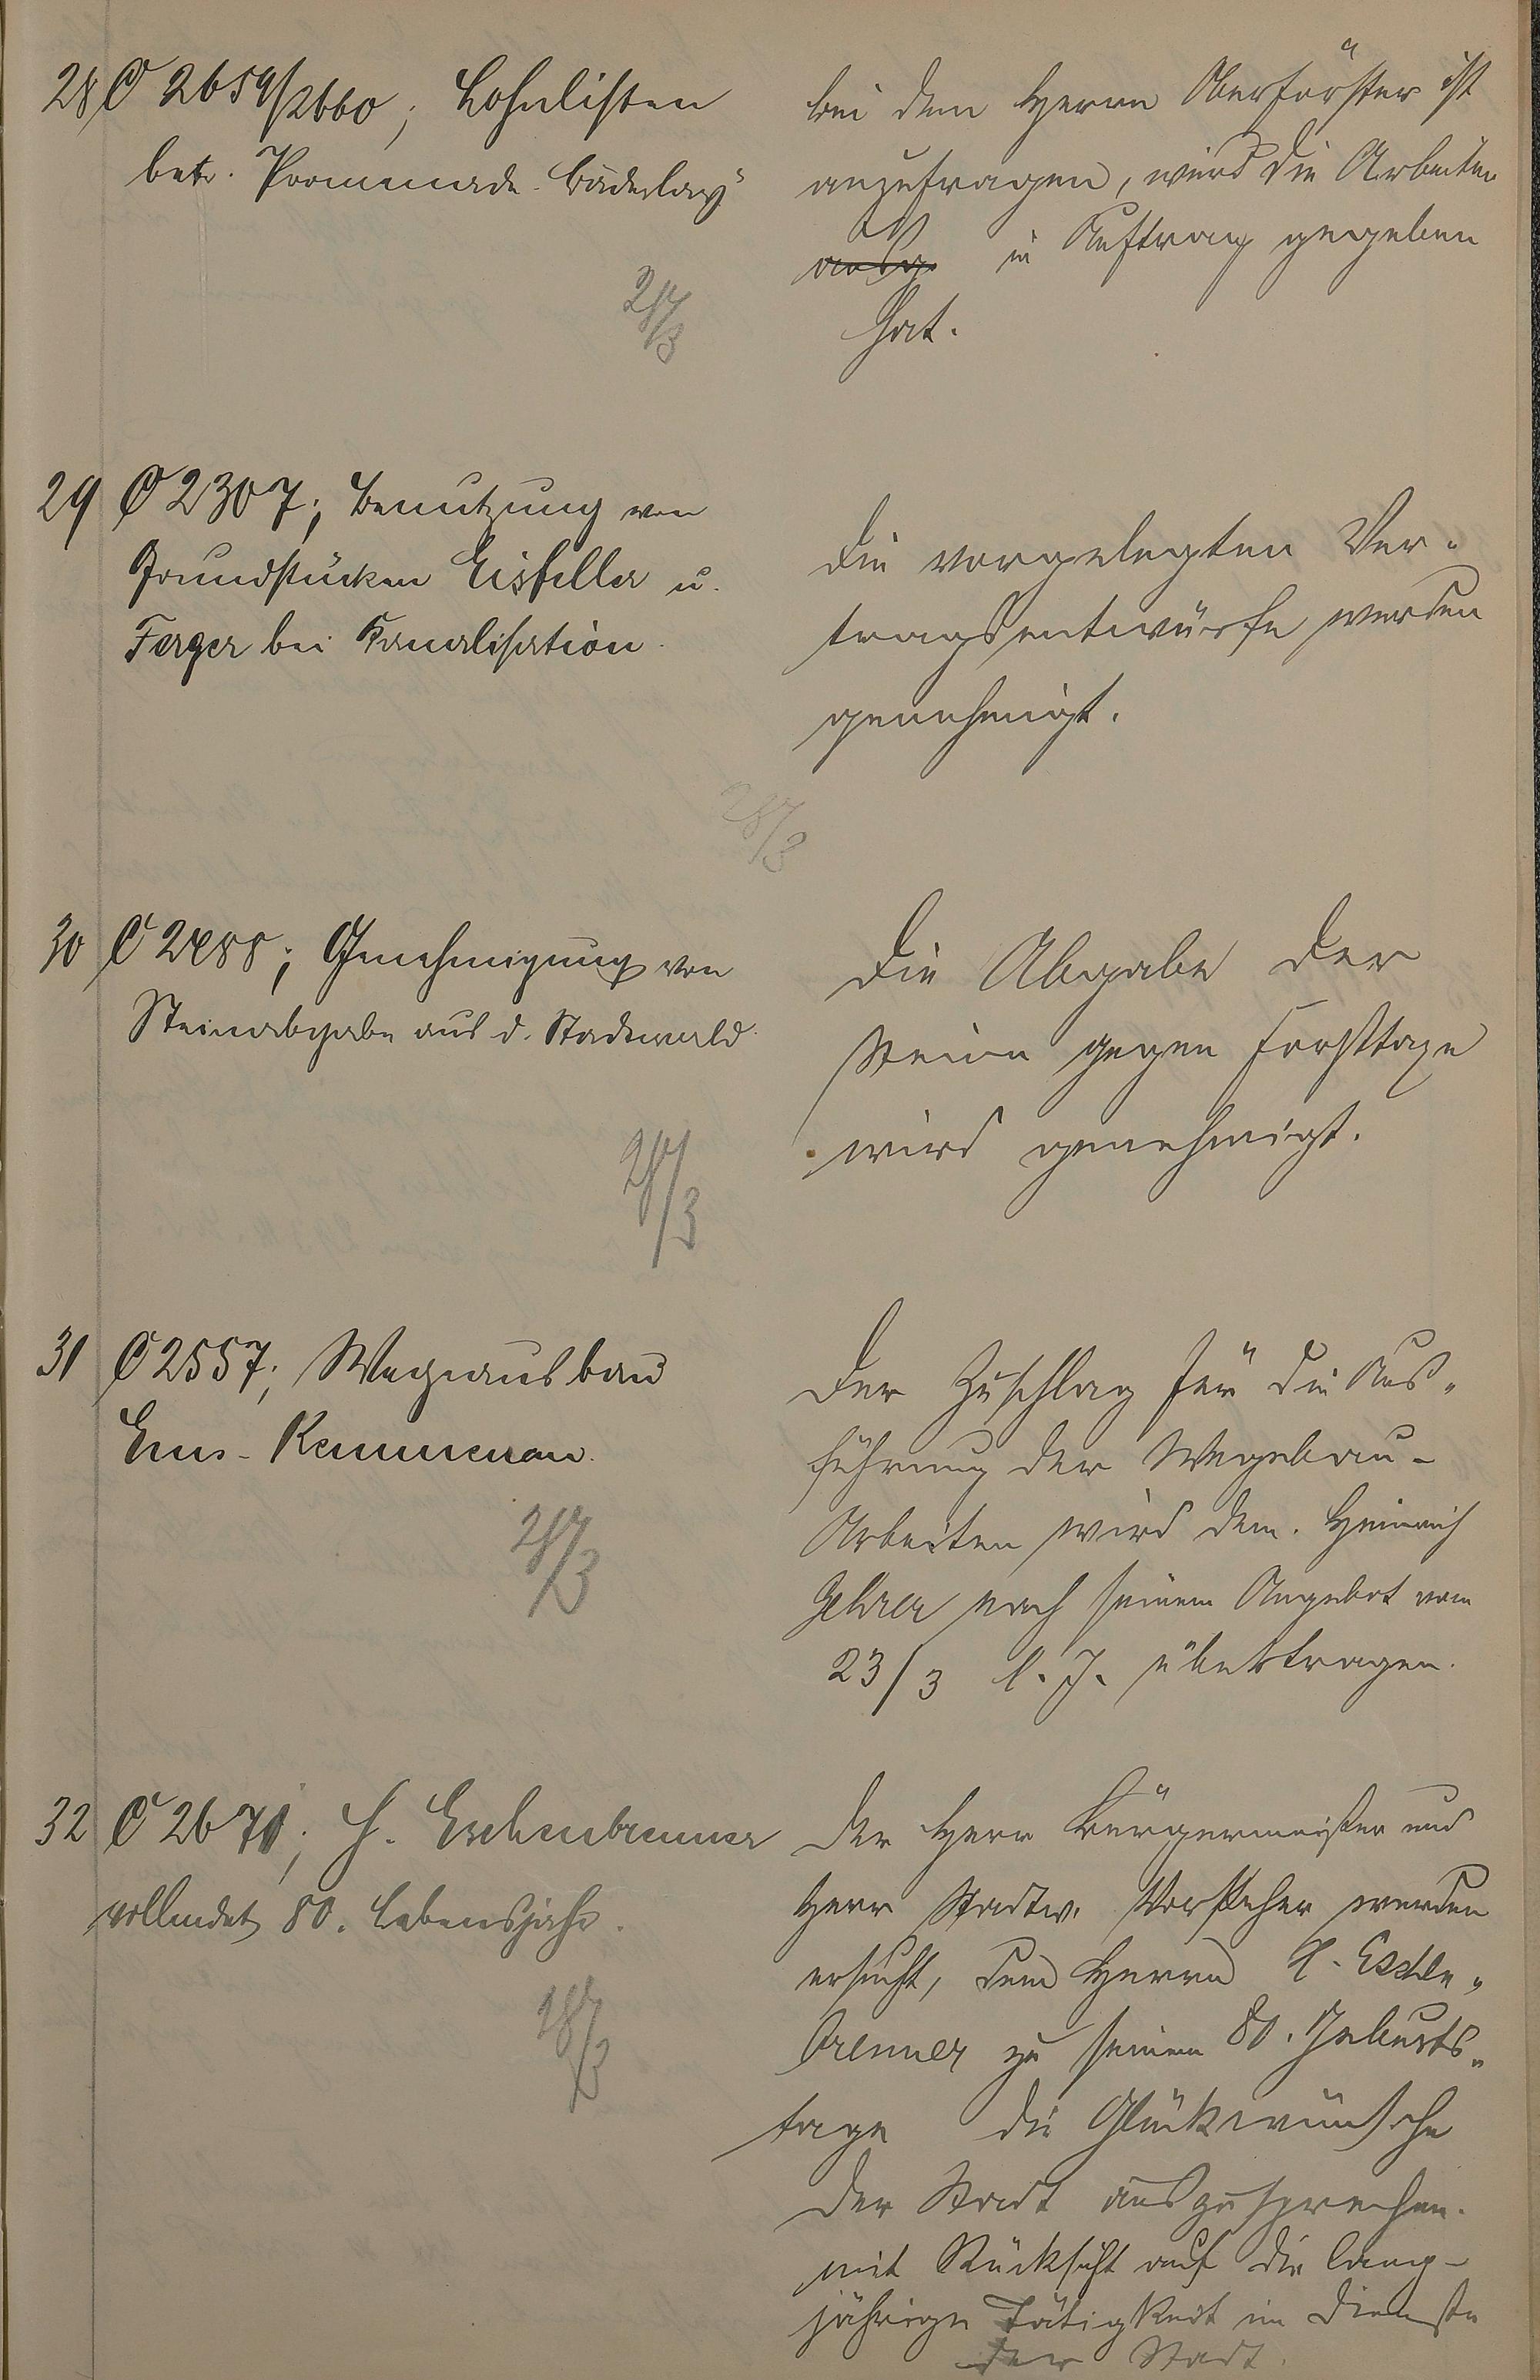 28 C 2659/2660; Lohnlisten
betr. Promenade "Bäderlay"
bei dem Herrn Oberförster ist
anzufragen, wer die Arbeiten
in Auftrag gegeben
hat.
29 C 2307; Benutzung von
Grundstücken Eisfeller u.
Ferger bei Kanalisation.
Die vorgelegten Ver-
tragsentwürfe werden
genehmigt.
28/3
30 C 2488; Genehmigung von
Steinabgabe aus d. Stadtwald
Die Abgabe der
Steine gegen Forsttaxe
wird genehmigt.
31 C 2557; Wegeausbau
Ems-Kemmenau.
Der Zuschlag für die Aus-
führung der Wegebau-
Arbeiten wird dem Heinrich
nach seinem Angebot vom
23/3 l. J. übertragen.
32 C 2671; H. Eschenbrenner
vollendet 80. Lebensjahr.
Der Herr Bürgermeister und
Herr Stadtv. Vorsteher werden
ersucht, dem Herrn H. Esche-
brenner zu seinem 80. Geburts-
tage die Glückwünsche
der Stadt auszusprechen.
mit Rücksicht auf die lang-
jährige Tätigkeit im Dienste
der Stadt.